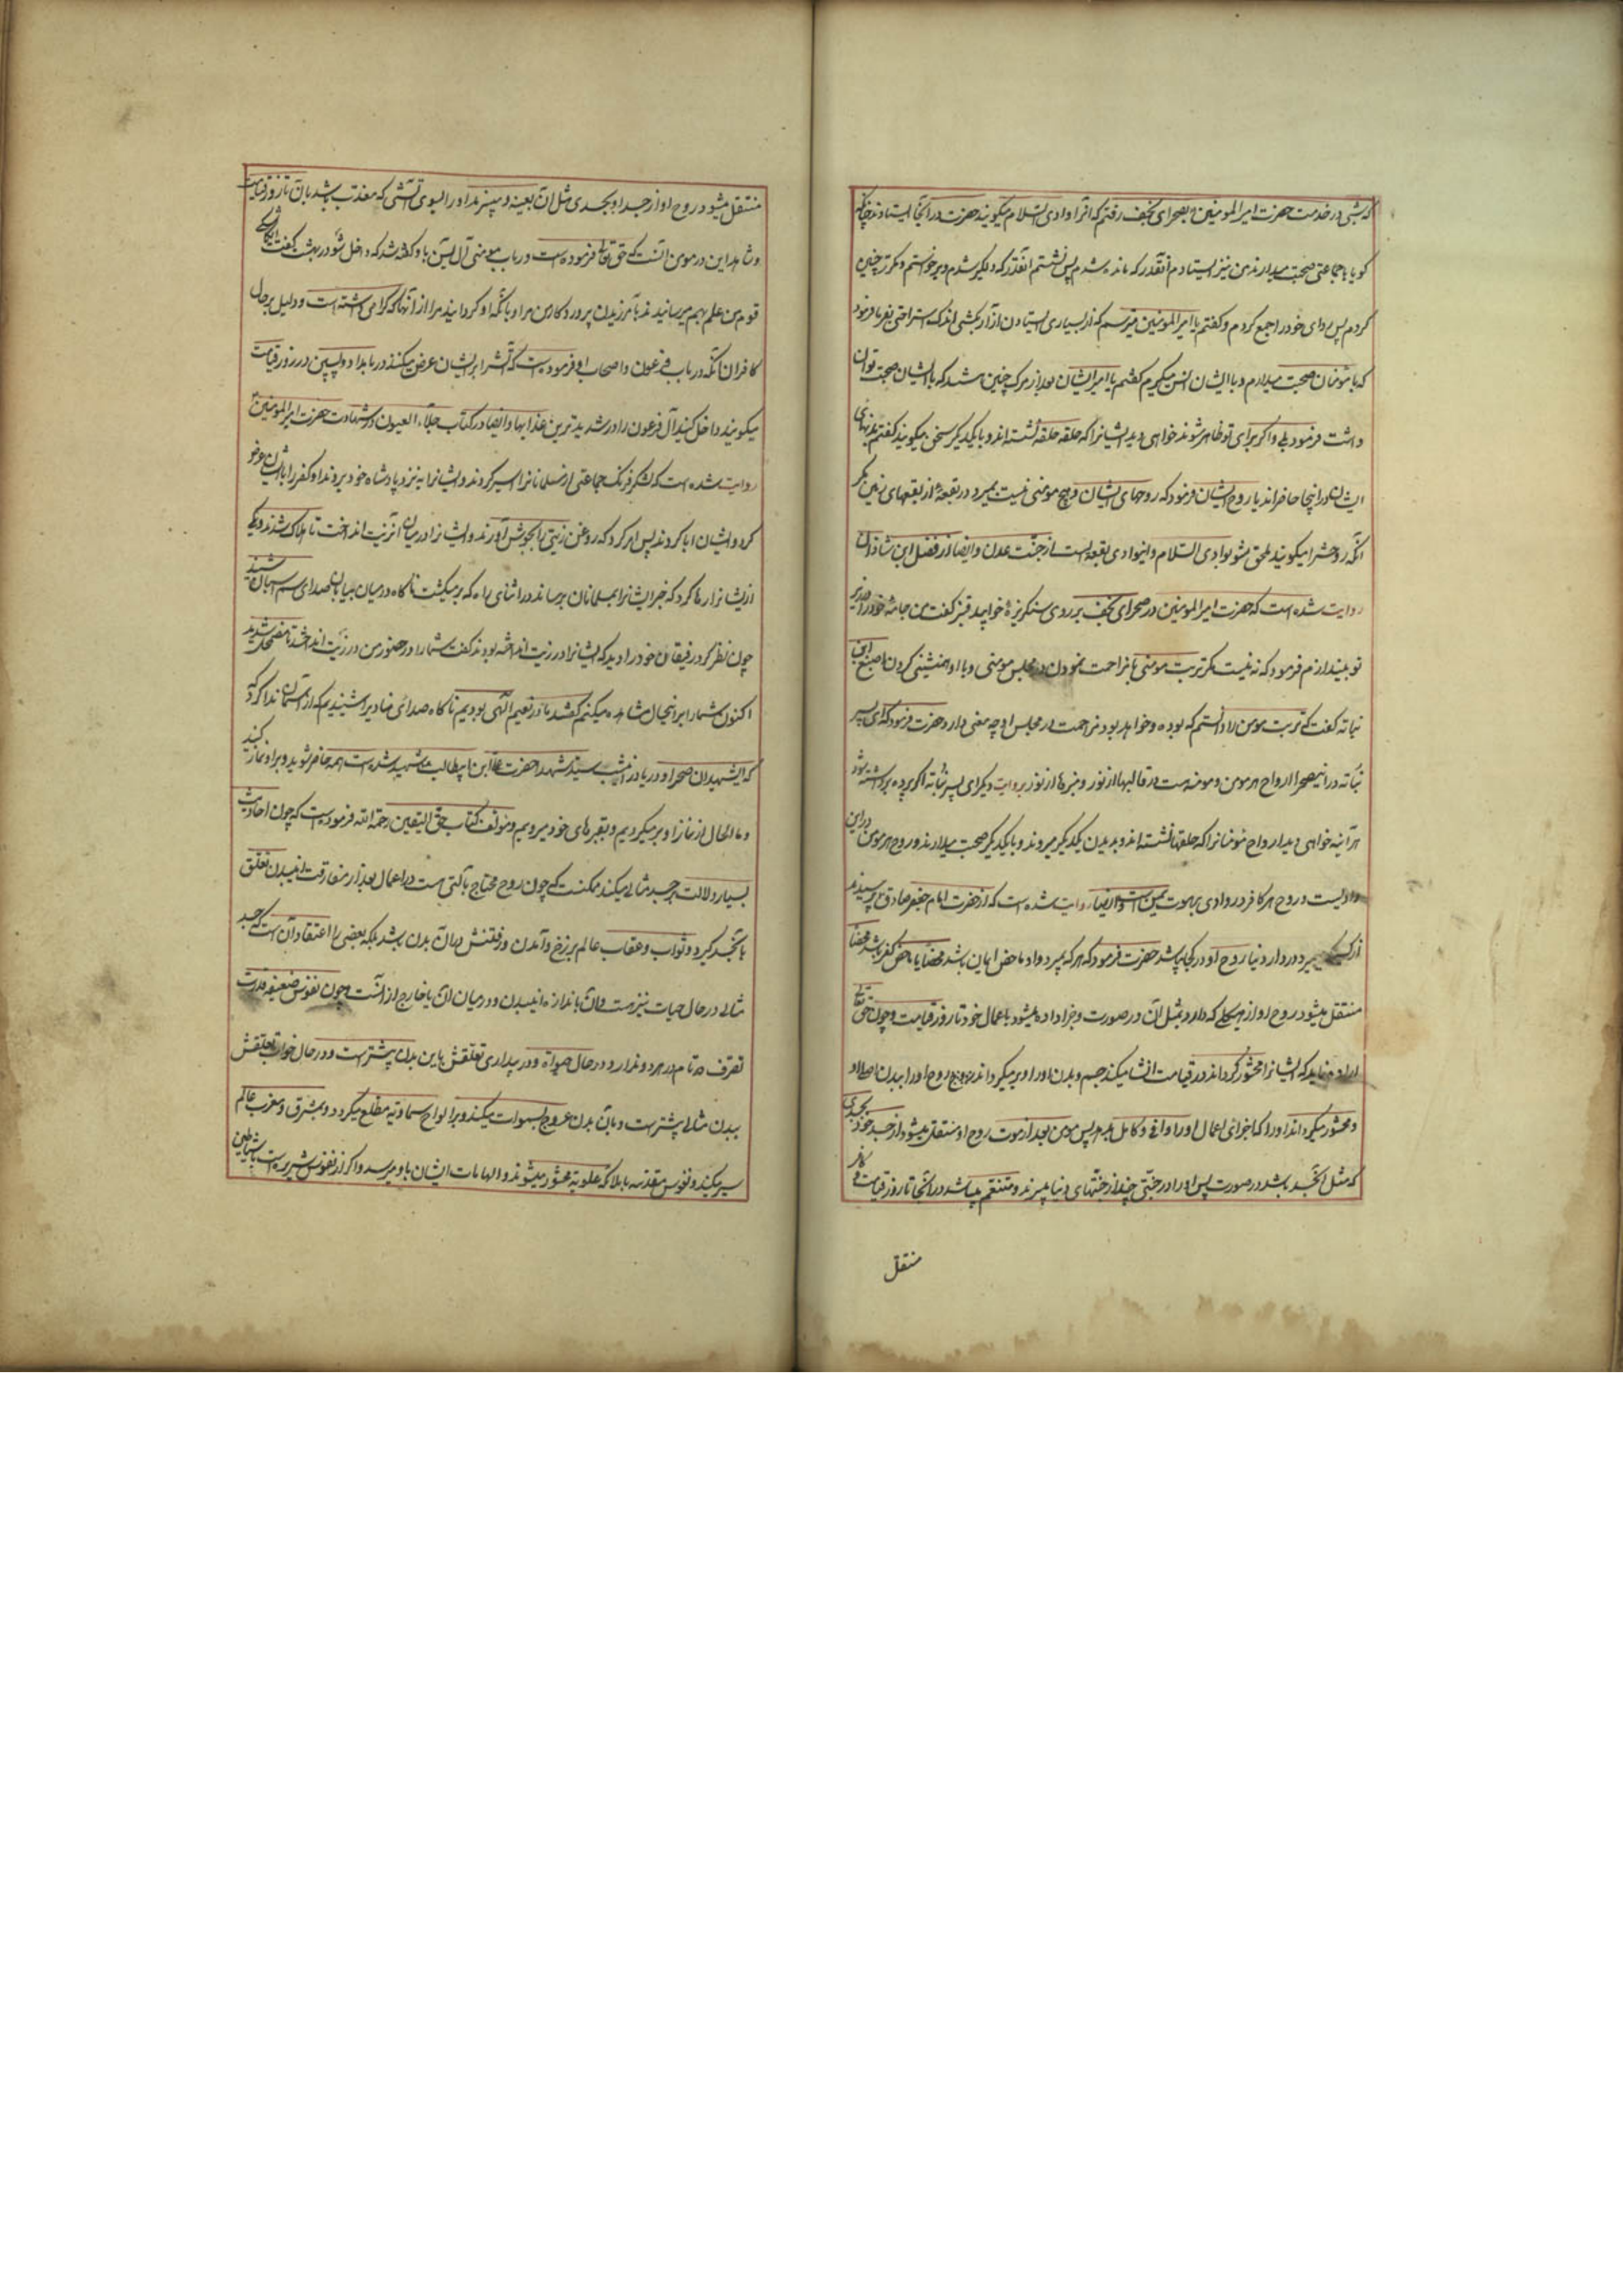 که شبی در خدمت حضرت امیر المومنین بصحرای نجف رفتم که آنرا وادی السلام میگویند حضرت در آنجا ایستادند چنانکه
گویا با جماعتی صحبت میدارند من نیز ایستادم آنقدر که مانده شدم پس نشستم آنقدر که دلگیر شدم و برخواستم و مکرر چنین
کردم پس ردای خود را جمع کردم و گفتم یا امیر المومنین میترسم که از بسیاری ایستادن آزار بکشی اندک استراحتی بفرما فرمود
که با مؤمنان صحبت میدارم و با ایشان انس میگیرم گفتم یا امیر ایشان بعد از مرگ چنین هستند که با ایشان صحبت توان
داشت فرمود بلی و اگر برای تو ظاهر شوند خواهی دید ایشانرا که حلقه حلقه نشسته اند و با یکدیگر سخن میگویند گفتم بدنهای
ایشان در اینجا حاضر اند یا روح ایشان فرمود که روحهای ایشان و هیچ مومنی نیست بمیرد در بقعهٔ از بقعهای زمین مگر
آنکه روحش را میگویند ملحق شو بوادی السلام و اینوادی بقعه ایست از جنت عدن و ایضا از فضل ابن شاذان
روایت شده است که حضرت امیر المومنین در صحرای نجف بر روی سنگریزهٔ خوابید قنبر گفت من جامهٔ خود را در زیر
تو بیندازم فرمود که نه نیست مگر تربت مومنی یا مزاحمت نمودن در مجلس مومنی و با او همنشینی کردن اصبغ ابن
نباته گفت که تربت مومن را دانستم که بوده و خواهد بود مزاحمت در مجلس او چه معنی دارد حضرت فرمود که ای پسر
نباته در اینصحرا ارواح هر مومن و مومنه هست در قالبها از نور و منبرها از نور بروایت دیگر ای پسر نباته اگر پرده برداشته شود
هر آینه خواهی دید ارواح مؤمنانرا که حلقها نشسته اند و بدیدن یکدیگر میروند و با یکدیگر صحبت میدارند و روح هر مومن در این
وادیست و روح هر کافر در وادی برهوت یمن است و ایضا روایت شده است که از حضرت امام جعفر صادق ع پرسیدند
میرد در دار دنیا روح او در کجا باشد حضرت فرمود که هر که بمیرد و او ماحض ایمان باشد محضا یا ماحض کفر باشد محضا
منتقل میشود روح او از هیکلی که دارد بمثل آن در صورت و جزا داده میشود باعمال خود تا روز قیامت و چون حق تعالی
اراده نماید که ایشانرا محشور گرداند در قیامت انشا میکند جسم و بدن او را و بر میگرداند روح او را ببدن اصلی او
و محشور میگرداند او را که جزای اعمال او را وافی و کامل بدهد پس مومن بعد از موت روح او منتقل میشود از جسد خود بجسدی
که مثل آن جسد باشد در صورت پس او را در جنتی چند از جنتهای دنیا میبرند و متنعم میباشد در آنجا تا روز قیامت و کافر
منتقل
منتقل میشود روح او از جسد او بجسدی مثل آن بعینه و میبرند او را بسوی آتشی که معذب باشد بآن تا روز قیامت
و شاهد این در مومن آنست که حق تعالی فرموده است در باب مومن آل یس باو گفته شد که داخل شو در بهشت گفت ای کاشکی
قوم من علم بهم میرسانیدند بآمرزیدن پروردگار من مرا و بآنکه او گردانید مرا از آنها که گرامی داشته است و دلیل بر حال
کافران آنکه در باب فرعون و اصحاب او فرموده است که آتش را بر ایشان عرض میکنند در بامداد و پسین و در روز قیامت
میگویند داخل کنید آل فرعون را در شدیدترین عذابها و ایضا در کتاب جلاء العیون در شهادت حضرت امیر المومنین
روایت شده است که لشکر فرنگ جماعتی از مسلمانانرا اسیر کردند و ایشانرا به نزد پادشاه خود بردند او کفر را بایشان عرض
کرد و ایشان ابا کردند پس امر کرد که روغن زیتی را بجوش آوردند و ایشانرا در میان آن زیت انداخت تا هلاک شدند و یکی
از ایشانرا رها کرد که خبر ایشانرا بمسلمانان برساند در اثنای راه که بر میگشت ناگاه در میان بیابان صدای سم اسبان شنید
چون نظر کرد رفیقان خود را دید که ایشانرا در زیت انداخته بودند گفت شما را در حضور من در زیت انداختند تا مضمحل شدید
اکنون شما را بر اینحال مشاهده میکنم گفتند ما در نعیم الهی بودیم ناگاه صدای منادی را شنیدیم که از آسمان ندا کرد که
که ای شهیدان صحرا و دریا در این شب سید شهدا حضرت علی ابن ابیطالب شهید شده است همه حاضر شوید و بر او نماز کنید
و ما الحال از نماز او بر میگردیم و بقبرهای خود میرویم و مؤلف کتاب حق الیقین رحمة الله فرموده است که چون احادیث
بسیار دلالت بر جسد مثالی میکند ممکنست که چون روح محتاج بآلتی هست در اعمال بعد از مفارقت از این بدن تعلق
بآن جسد گیرد و ثواب و عقاب عالم برزخ و آمدن و رفتنش در آن بدن باشد بلکه بعضی را اعتقاد آن است که جسد
مثالی در حال حیات نیز هست و آن باندازه این بدن و در میان آن یا خارج از آنست و چون نفوس ضعیفه قدرت
تصرف تام در هر دو ندارد در حال حیوة و در بیداری تعلقش باین بدن پیشتر است و در حال خواب تعلقش
ببدن مثالی پیشتر است و بآن بدن عروج بسموات میکند و بر الواح سماویه مطلع میگردد و بمشرق و مغرب عالم
سیر میکند و نفوس مقدسه با ملائکه علویه محشور میشوند و الهامات ایشان باو میرسد و اگر از نفوس شریره است با شیاطین